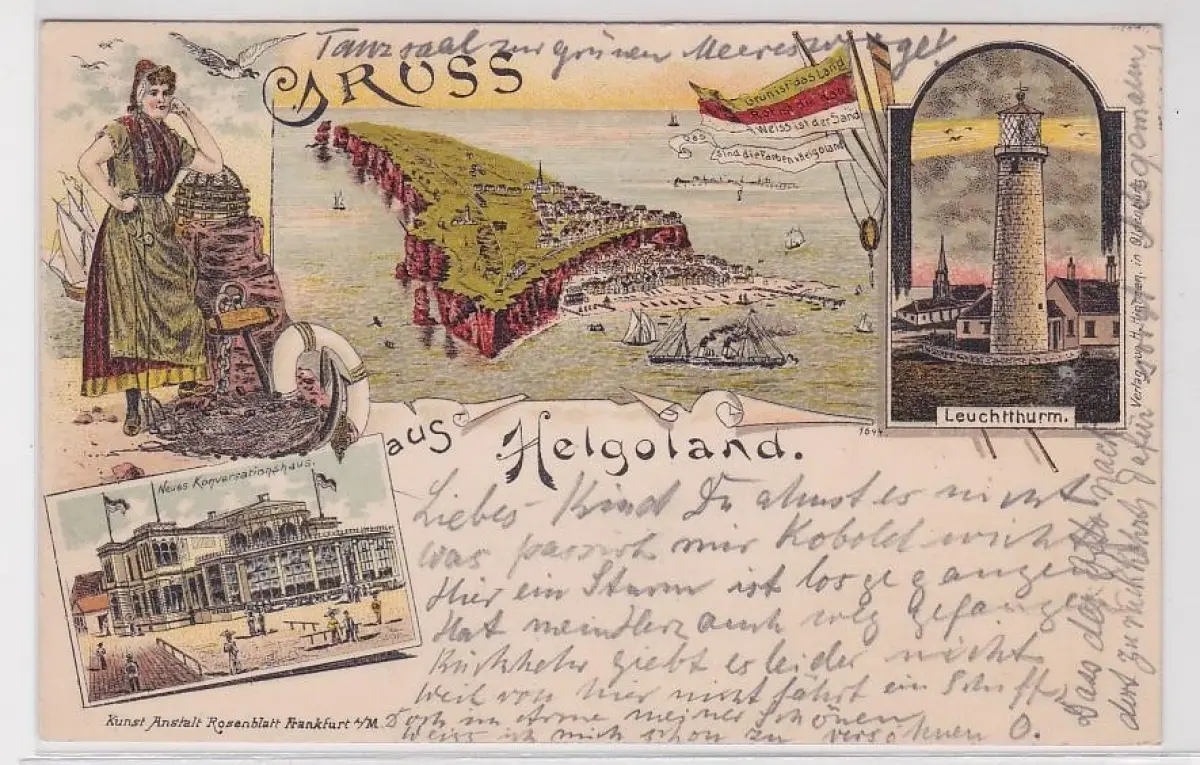 Tanzsaal zur grünen Meereswoge!
GRUSS
Grün ist das Land
Rot ist die Kant
Weiss ist der Sand
Das
sind die Farben v Helgoland
aus Helgoland.
1644.
Leuchtthurm.
Neues Konversationshaus.
Kunst Anstalt Rosenblatt Frankfurt a/M.
Verlag von H. in
Liebes Kind Du ahnst es nicht
was passirt mir Kobold wicht
Hier ein Sturm ist losgegangen
Hat mein Herz auch weg gefangen
Rückkehr giebt es leider nicht
weil von hier nicht fährt ein Schiff
Doch im Arme meines Schönen
Weiss ich mich schon zu versöhnen O.
Dass der nach
dort zurückkehrt dafür